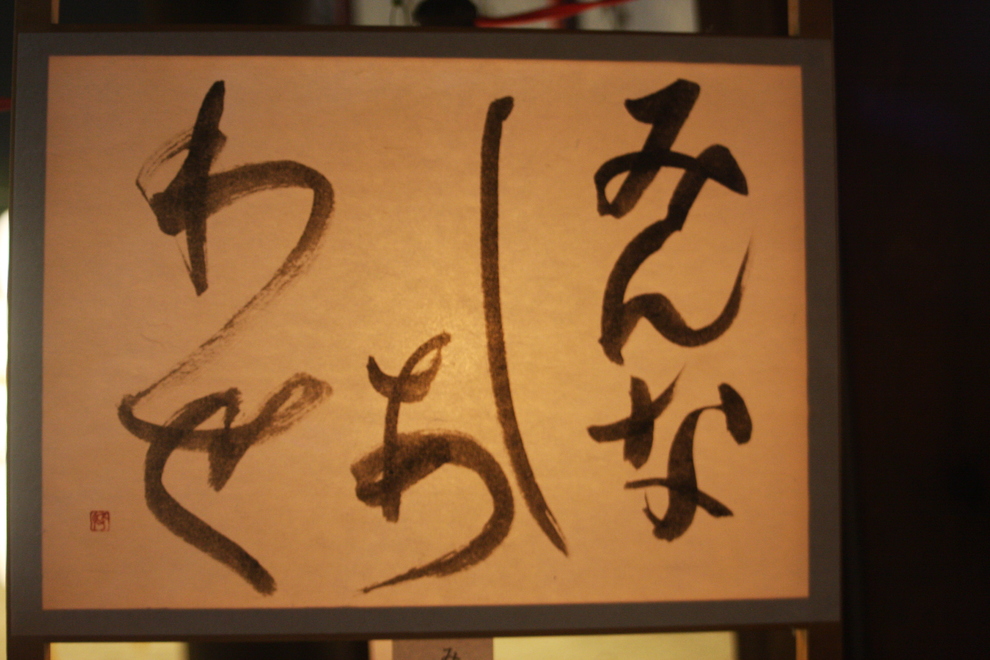 みんな
し
あ
わせ
み